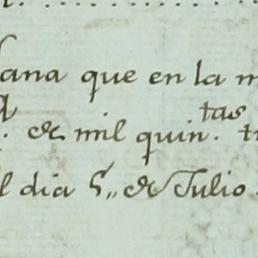 ana que en la m
. de mil quin.tas t
l dia 5,, de Julio